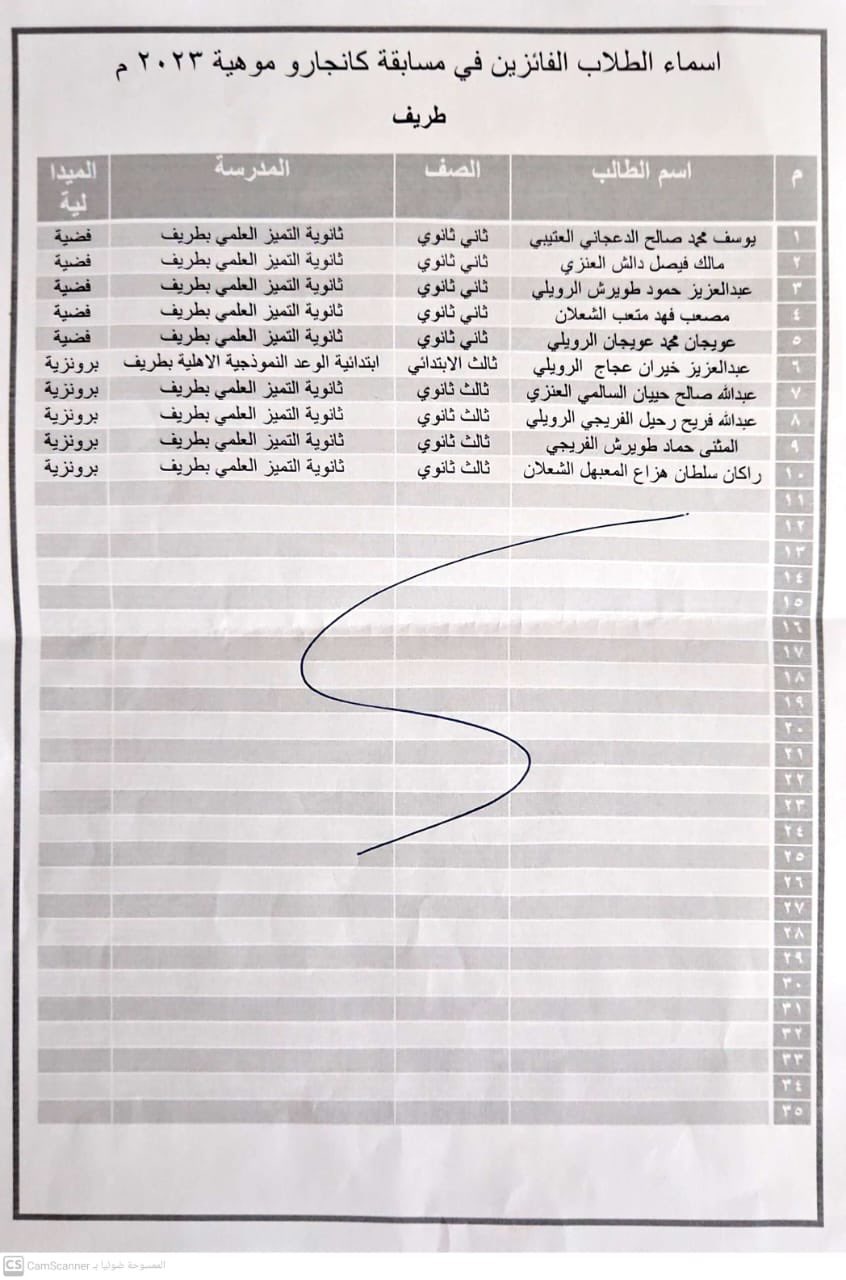 اسماء الطلاب الفائزين في مسابقة كانجارو موهبة ٢٠٢٣ م
طريف
م اسم الطالب الصف المدرسة الميدا
لية
١ يوسف محمد صالح الدعجاني العتيبي ثاني ثانوي ثانوية التميز العلمي بطريف فضية
٢ مالك فيصل دالش العنزي ثاني ثانوي ثانوية التميز العلمي بطريف فضية
٣ عبدالعزيز حمود طويرش الرويلي ثاني ثانوي ثانوية التميز العلمي بطريف فضية
٤ مصعب فهد متعب الشعلان ثاني ثانوي ثانوية التميز العلمي بطريف فضية
٥ عويجان محمد عويجان الرويلي ثاني ثانوي ثانوية التميز العلمي بطريف فضية
٦ عبدالعزيز خيران عجاج الرويلي ثالث الابتدائي ابتدائية الوعد النموذجية الاهلية بطريف برونزية
٧ عبدالله صالح حبيان السالمي العنزي ثالث ثانوي ثانوية التميز العلمي بطريف برونزية
٨ عبدالله فريح رحيل الفريجي الرويلي ثالث ثانوي ثانوية التميز العلمي بطريف برونزية
٩ المثنى حماد طويرش الفريجي ثالث ثانوي ثانوية التميز العلمي بطريف برونزية
١٠ راكان سلطان هزاع المعبهل الشعلان ثالث ثانوي ثانوية التميز العلمي بطريف برونزية
١١
١٢
١٣
١٤
١٥
١٦
١٧
١٨
١٩
٢٠
٢١
٢٢
٢٣
٢٤
٢٥
٢٦
٢٧
٢٨
٢٩
٣٠
٣١
٣٢
٣٣
٣٤
٣٥
CS CamScanner الممسوحة ضوئيا بـ